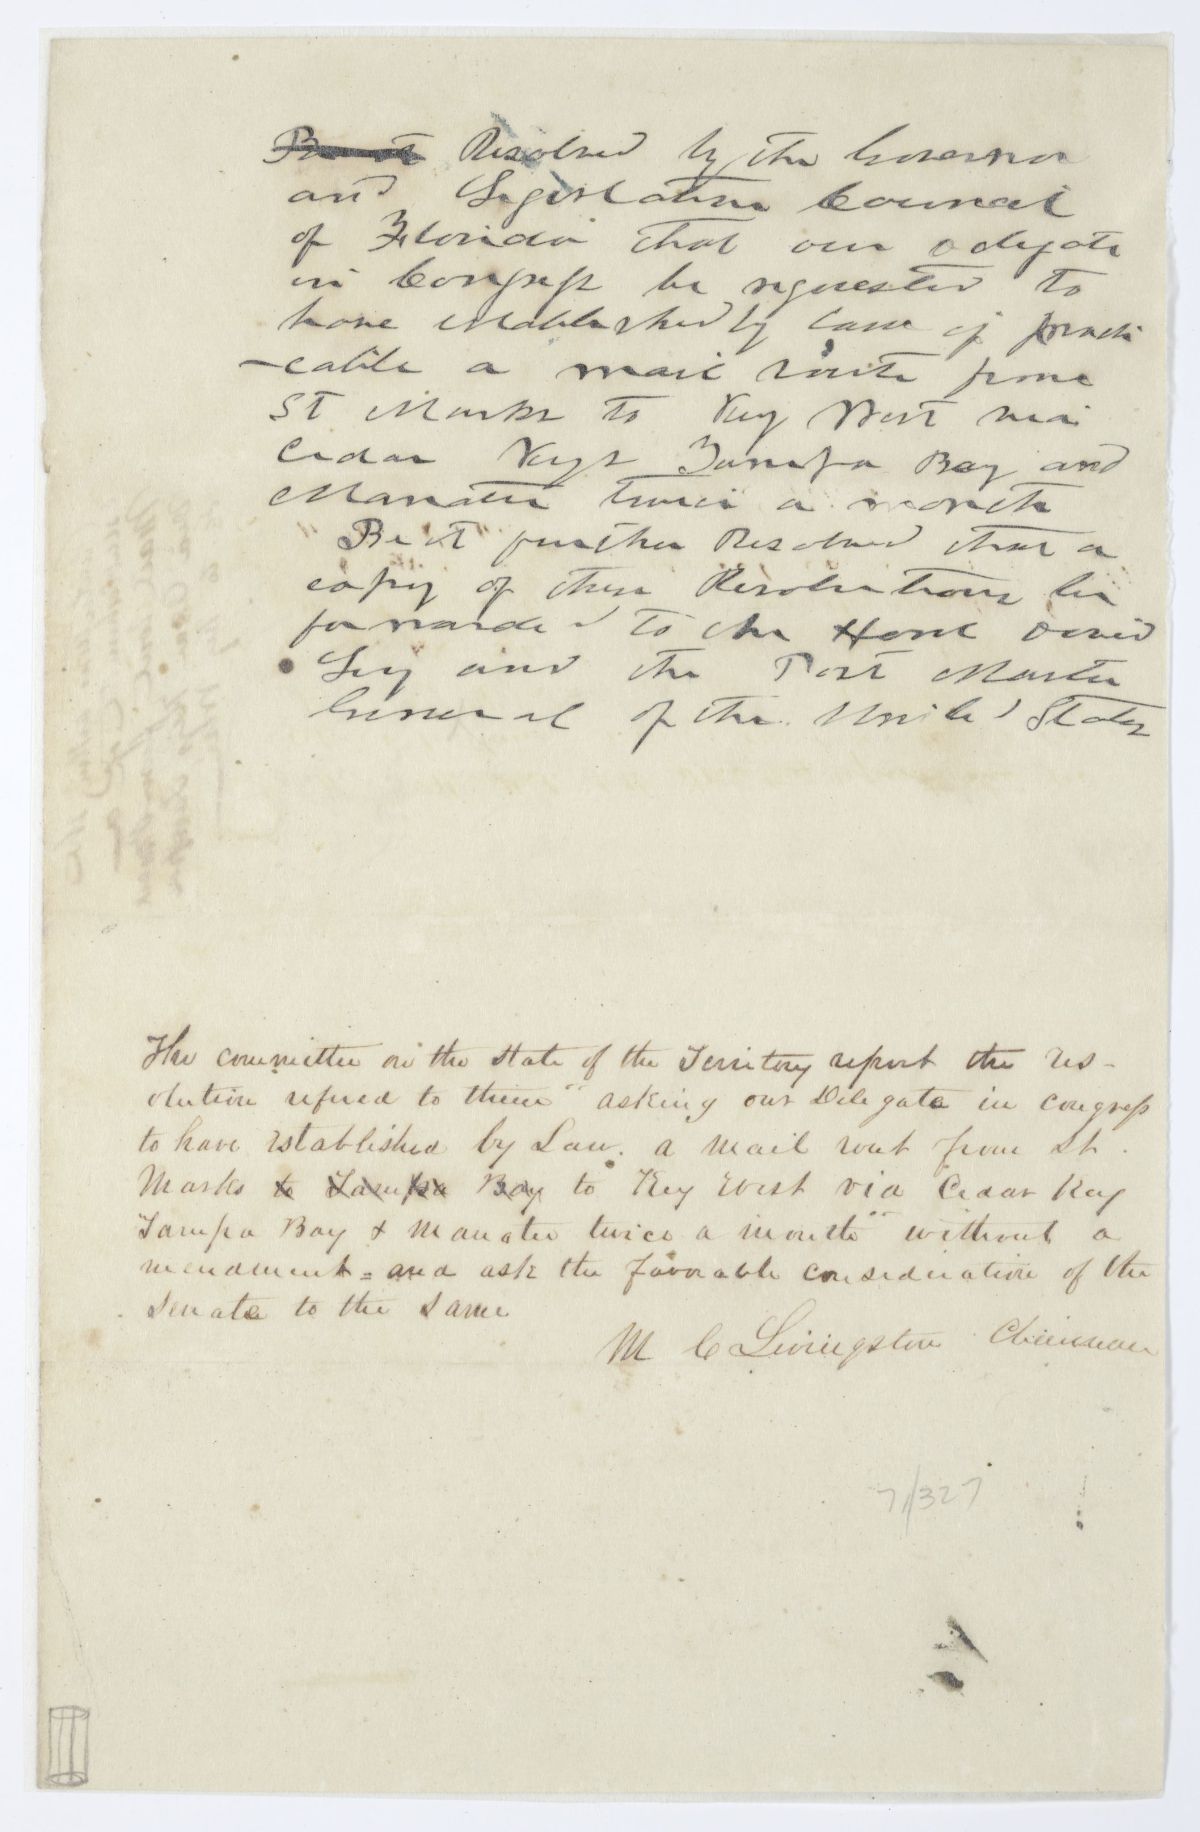 Resolved by the Governor
and Legislative Council
of Florida that our delegate
in Congress be requested to
have established by law if practi
-cable a mail route from
St Marks to Key West via
Cedar Keys Tampa Bay and
Manatee twice a month
Be it further Resolved that a
copy of these Resolutions be
forwarded to the Hon David
Levy and the Post Master
General of the United States
The committee on the state of the Territory report the res-
olution refered to them " asking our Delegate in congress
to have established by Law. a mail rout from St.
Marks to Tampa Bay to Key West via Cedar Key
Tampa Bay & Manatee twice a month " without a
mendment = and ask the favorable consideration of the
Senate to the same
M C Livingston Chairman
7/327